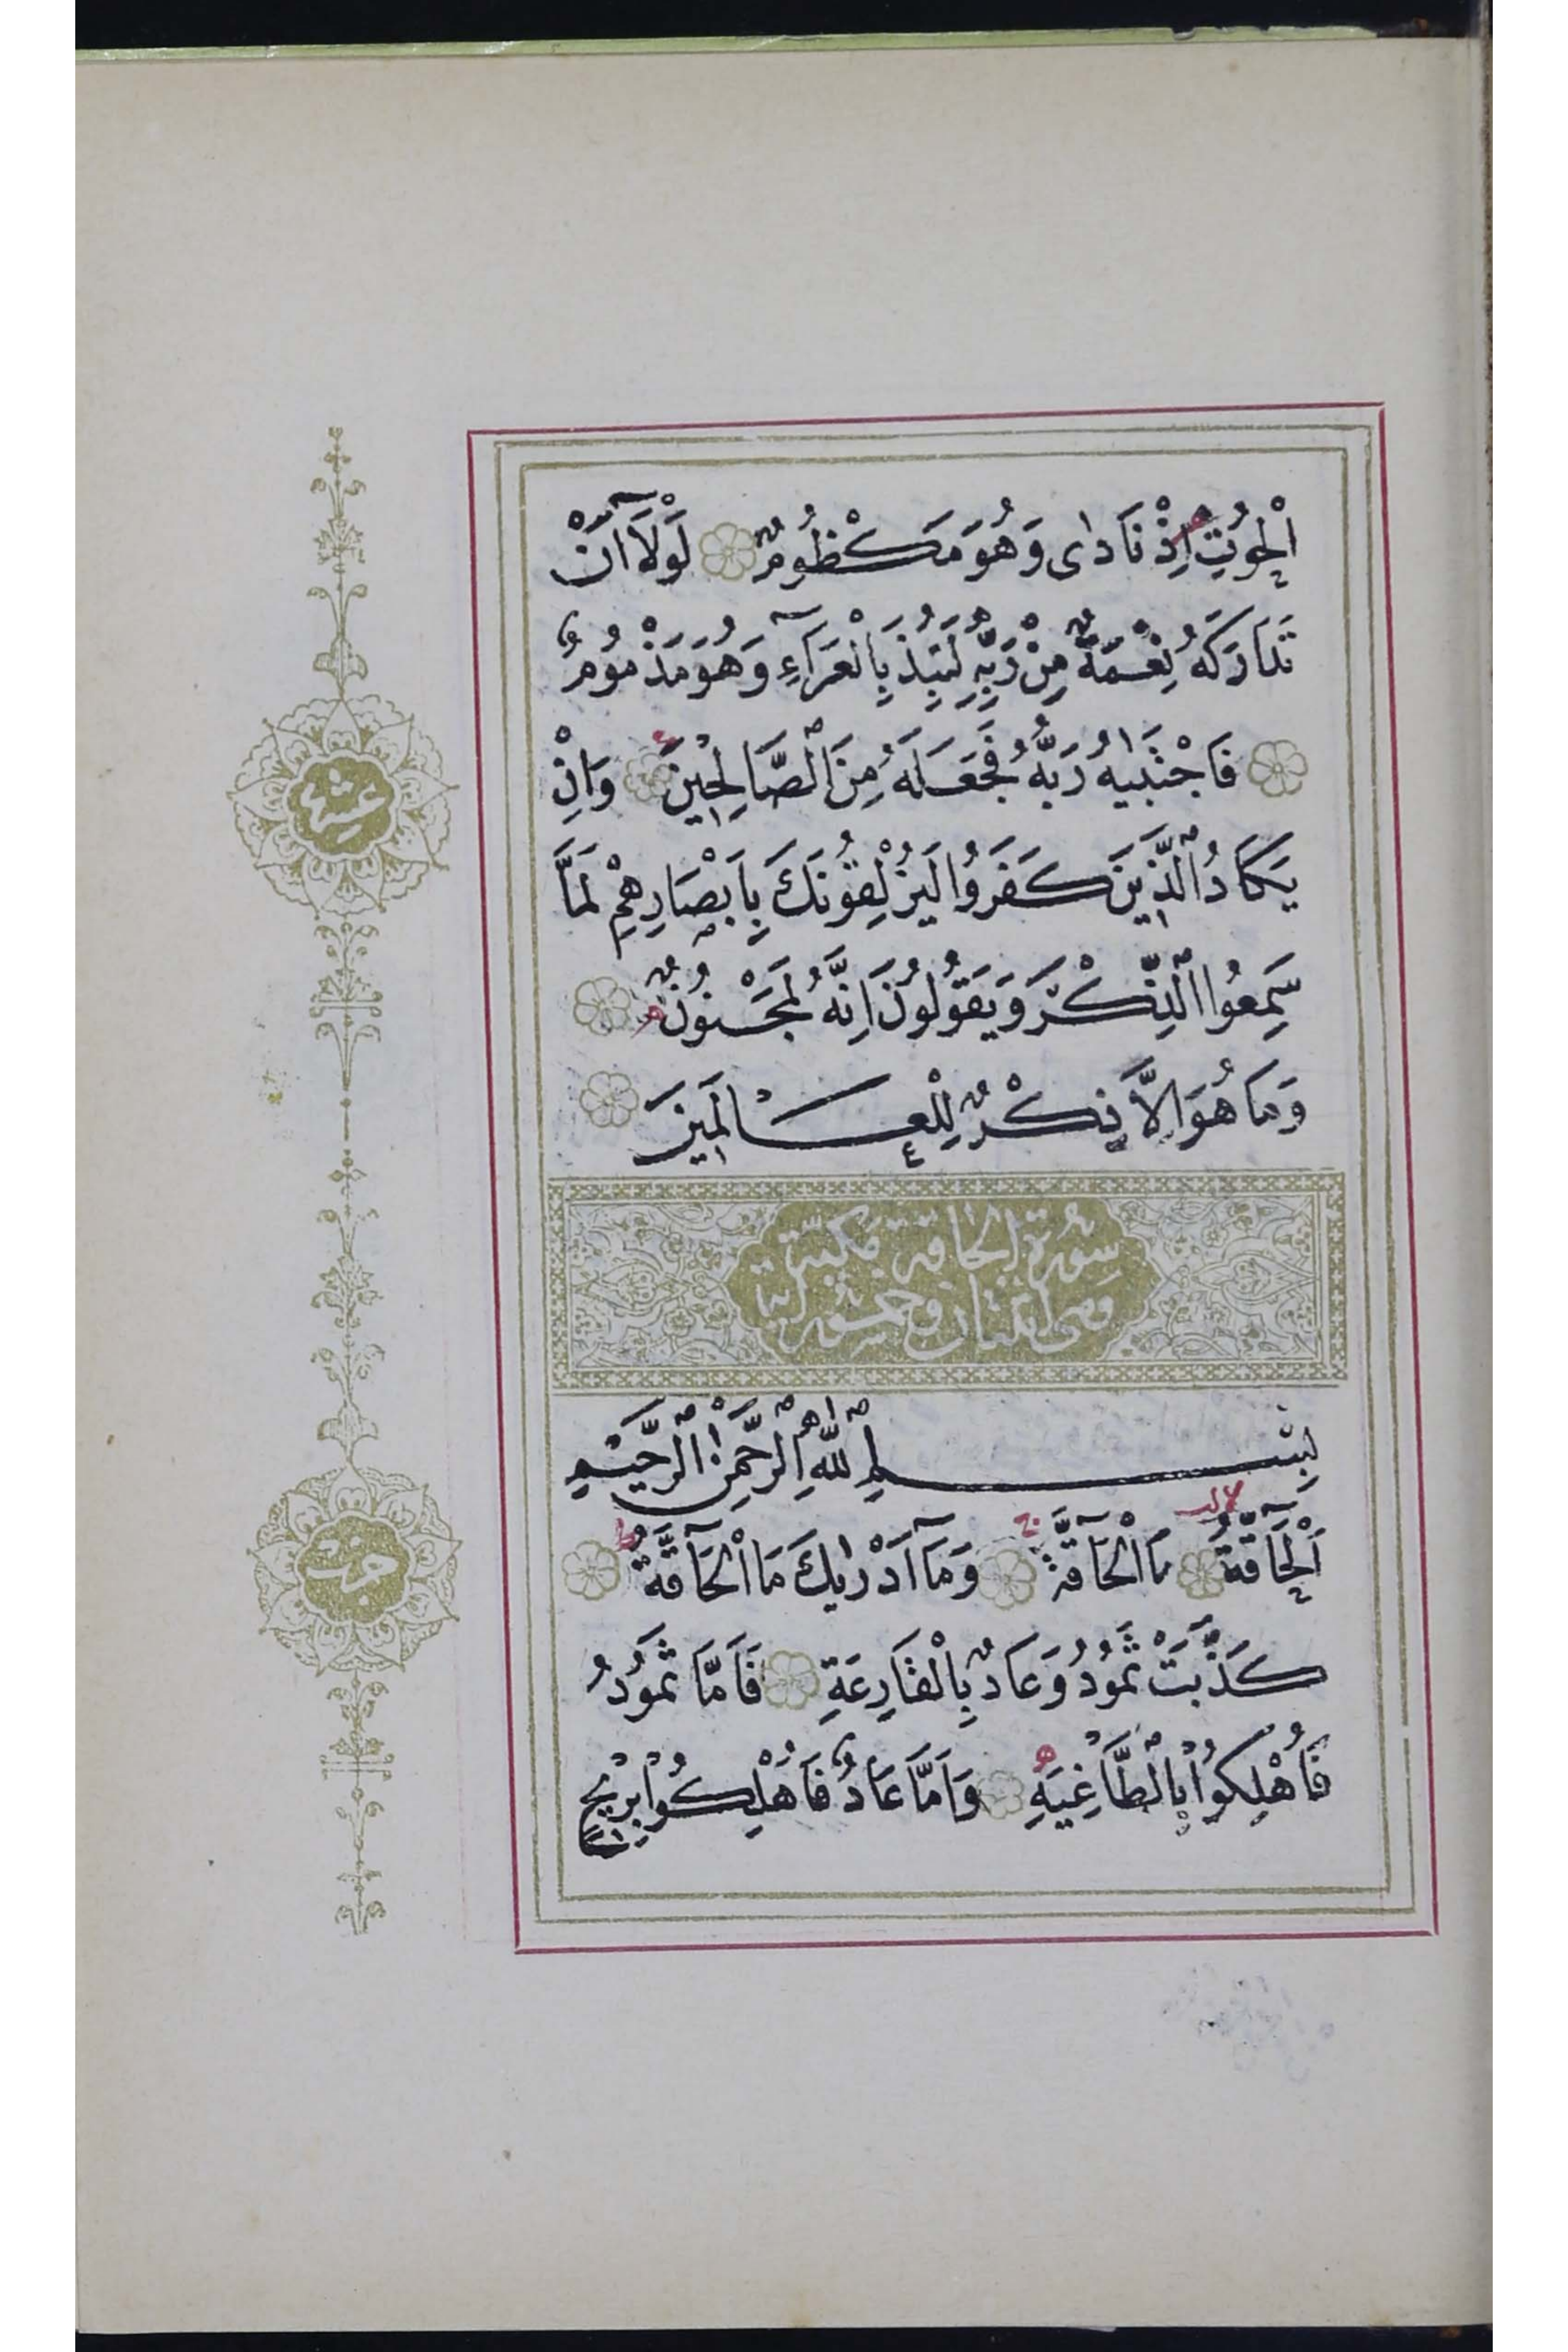 اَلْحُوتِ اِذْ نَادٰى وَهُوَ مَكْظُومٌ لَوْلَآ اَنْ
تَدَارَكَهُ نِعْمَةٌ مِنْ رَبِّهِ لَنُبِذَ بِالْعَرَآءِ وَهُوَ مَذْمُومٌ
فَاجْتَبٰيهُ رَبُّهُ فَجَعَلَهُ مِنَ الصَّالِحِينَ وَاِنْ
يَكَادُ الَّذِينَ كَفَرُوا لَيُزْلِقُونَكَ بِاَبْصَارِهِمْ لَمَّا
سَمِعُوا الذِّكْرَ وَيَقُولُونَ اِنَّهُ لَمَجْنُونٌ
وَمَا هُوَ اِلَّا ذِكْرٌ لِلْعَالَمِينَ
سورة الحاقة مكية
وهى اثنتان وخمسون آية
بِسْمِ اللهِ الرَّحْمٰنِ الرَّحِيمِ
اَلْحَآقَّةُ مَا الْحَآقَّةُ وَمَآ اَدْرٰيكَ مَا الْحَآقَّةُ
كَذَّبَتْ ثَمُودُ وَعَادٌ بِالْقَارِعَةِ فَاَمَّا ثَمُودُ
فَاُهْلِكُوا بِالطَّاغِيَةِ وَاَمَّا عَادٌ فَاُهْلِكُوا بِرِيحٍ
عشر
حزب